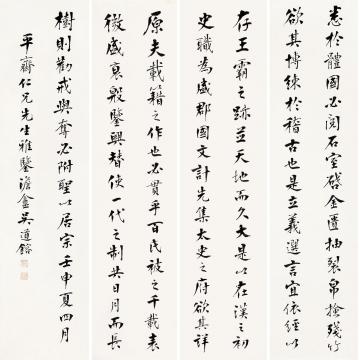 悉於體國必閱石室啓金匱抽裂帛撿殘竹
欲其博練於稽古也是立義選言宜依經以
存王霸之跡並天地而久大是以在漢之初
史職為盛郡國文計先集太史之府欲其詳
原夫載籍之作也必貫乎百氏被之千載表
徵盛衰殷鑒興替使一代之制共日月而長
樹則勸戒與奪必附聖以居宗壬申夏四月
平齋仁兄先生雅鑒澹盦吳道鎔